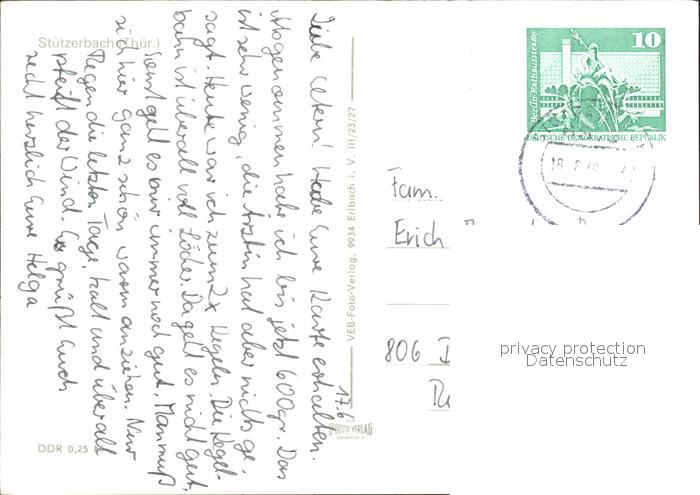 Stützerbach (Thür.)
17.6
Liebe Eltern! Habe Eure Karte erhalten.
Abgenommen habe ich bis jetzt 600gr. Das
ist sehr wenig, die Ärztin hat aber nichts ge-
sagt. Heute war ich zum 2x Kegeln. Die Kegel-
bahn ist überall voll Löcher. Da geht es nicht gut.
Sonst geht es mir immer noch gut. Man muß
sich hier ganz schön warm anziehen. Nur
Regen die letzten Tage, kalt und überall
pfeift der Wind. Es grüßt Euch
recht herzlich Eure Helga
DDR 0,25
VEB-Foto-Verlag, 9934 Erlbach i. V. III/23/27
Berlin, Rathausstraße
10
DEUTSCHE DEMOKRATISCHE REPUBLIK
Fam.
Erich
806
privacy protection
Datenschutz